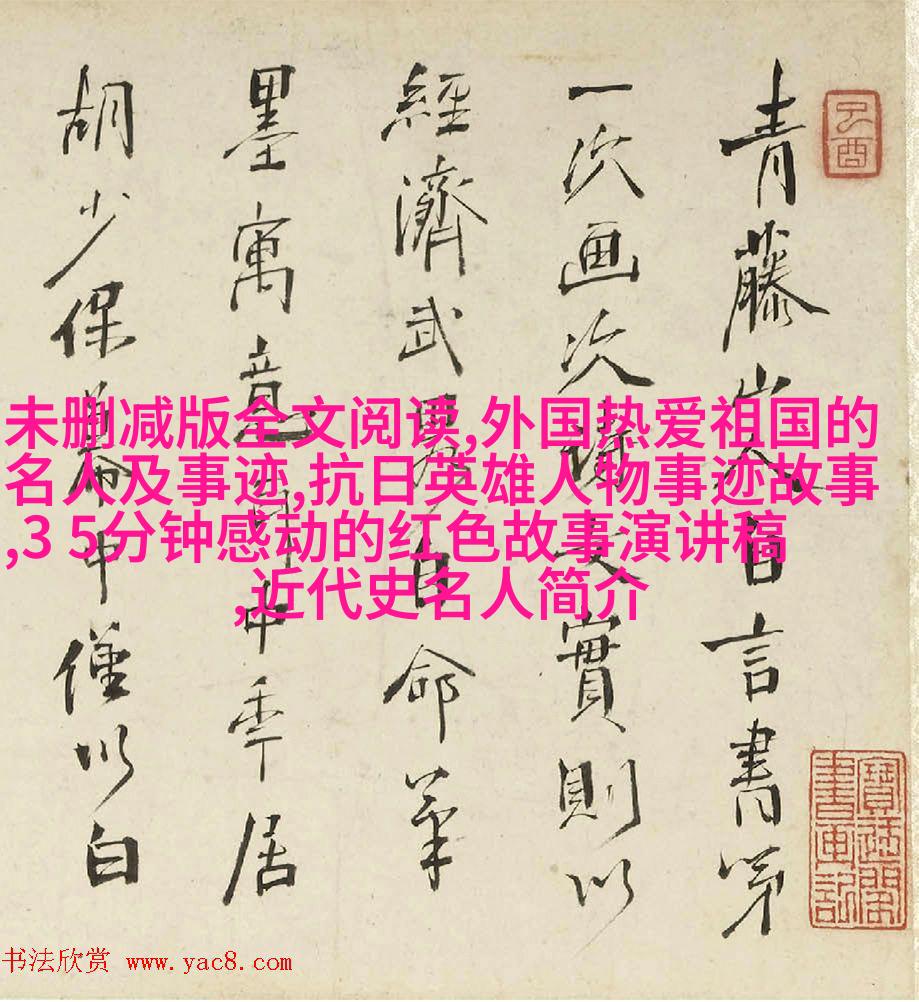 青藤山人自言書第
一次画次文實則以
經濟武畧自命筆
墨寓意中年居
胡少保幕中僅以白
乙酉
寶迂閣
書畫記
未删减版全文阅读,外国热爱祖国的
名人及事迹,抗日英雄人物事迹故事
,3 5分钟感动的红色故事演讲稿
,近代史名人简介
书法欣赏 www.yac8.com